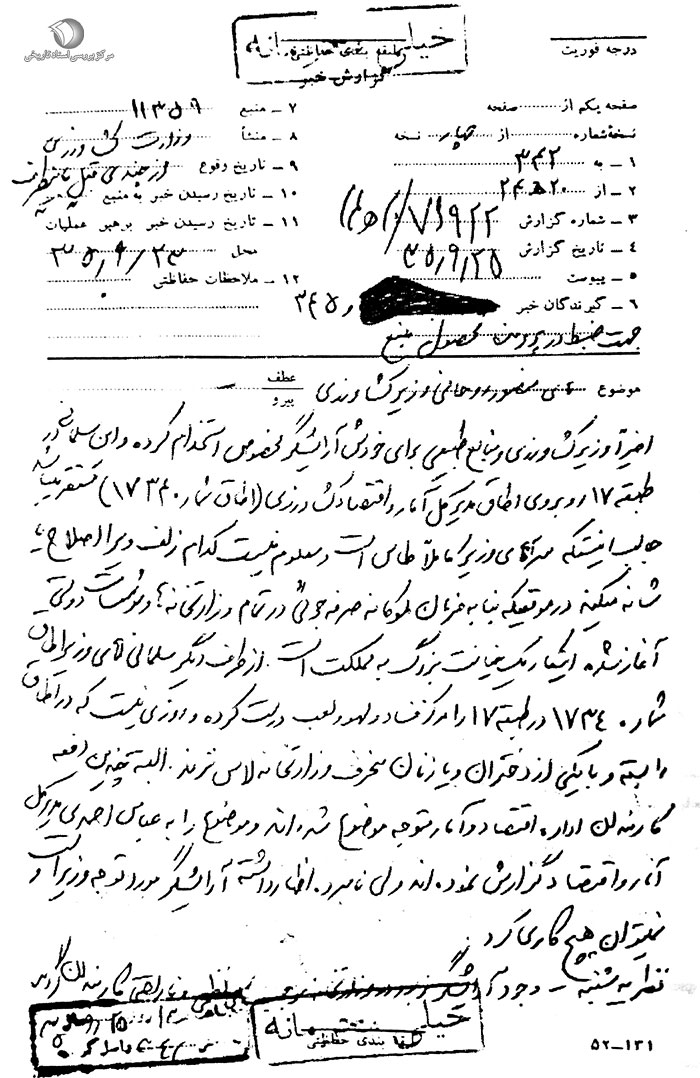 مرکز بررسی اسناد تاریخی
خیلی محرمانه
طبقه بندی حفاظتی
گزارش خبر
درجه فوریت
صفحه یکم از صفحه
نسخه شماره از چهار نسخه
۱ – به ۳۴۲
۲ – از ۲۰ ه ۲۴
۳ – شماره گزارش
۴ – تاریخ گزارش ۳۵/۹/۲۵
۵ – پیوست
۶ – گیرندگان خبر
۷ – منبع ۱۱۳۵۹
۸ – منشأ وزارت کشاورزی
۹ – تاریخ وقوع از چندی قبل باینطرف
۱۰ – تاریخ رسیدن خبر به منبع
۱۱ – تاریخ رسیدن خبر برهبر عملیات
محل ۳۵/۹/۲۳
۱۲ – ملاحظات حفاظتی
۳۴۵
جهت ضبط در پرونده محصول منبع
موضوع منصور روحانی وزیر کشاورزی
عطف
پیرو
اخیراً وزیر کشاورزی و منابع طبیعی برای خودش آرایشگر مخصوص استخدام کرده و این سلمانی در
طبقه ۱۷ روبروی اطاق مدیر کل آمار و اقتصاد کشاورزی (اطاق شماره ۱۷۳۴۰) مستقر میباشد
جالب اینستکه سر آقای وزیر کاملاً طاس است و معلوم نیست کدام زلف ویرا اصلاح یا
شانه میکند در موقعیکه بنا به فرمان ملوکانه صرفه جوئی در تمام وزارتخانه ها و مؤسسات دولتی
آغاز شده اینکار یک خیانت بزرگ به مملکت است. از طرف دیگر سلمانی آقای وزیر اطاق
شماره ۱۷۳۴۰ در طبقه ۱۷ را مرکز فساد و لهو و لعب درست کرده و روزی نیست که در اطاق
را بسته و با یکی از دختران و یا زنان منحرف وزارتخانه لاس نزند. البته چندین دفعه
کارمندان اداره اقتصاد و آمار متوجه موضوع شده اند و موضوع را به عباس احمدی مدیر کل
آمار و اقتصاد گزارش نموده اند ولی نامبرده اظهار داشته آرایشگر مورد توجه وزیر است و
نمیتوان هیچ کاری کرد
نظریه شنبه – وجود آرایشگر کارمندان گردید
خیلی محرمانه
طبقه بندی حفاظتی
۵۲–۱۳۱